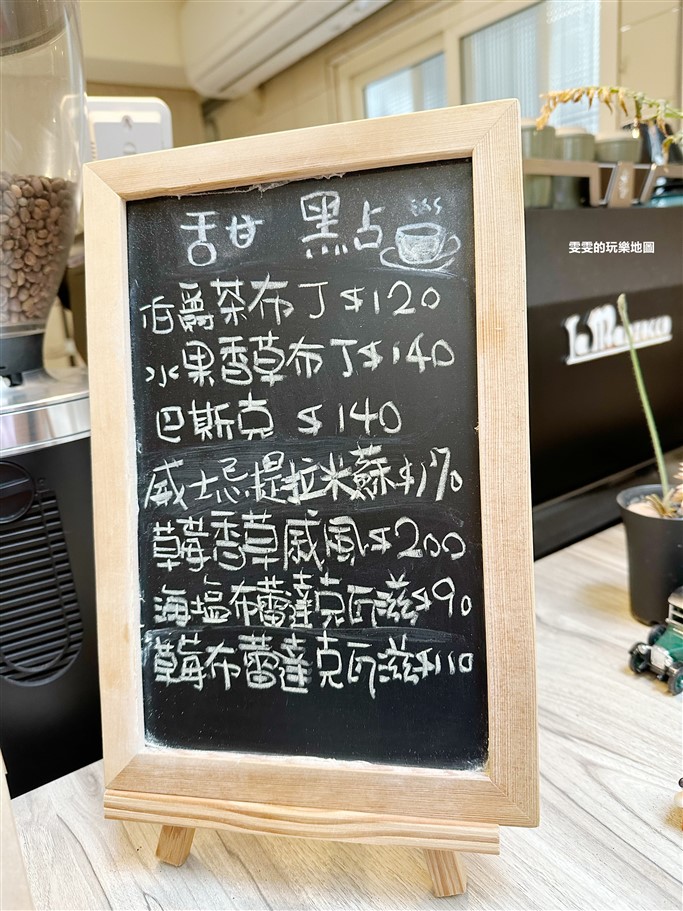 甜 點
雯雯的玩樂地圖
伯爵茶布丁$120
La Marzocco
水果香草布丁$140
巴斯克 $140
威士忌提拉米蘇$170
草莓香草戚風$200
海塩布蕾達克瓦滋$90
草莓布蕾達克瓦滋$110